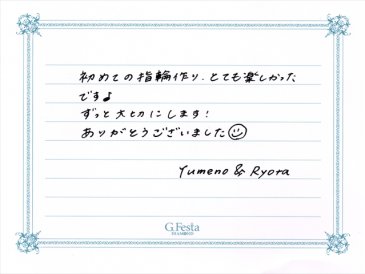 初めての指輪作り、とても楽しかった
です♪
ずっと大切にします!
ありがとうございました☺
Yumeno & Ryota
G.Festa
DIAMOND